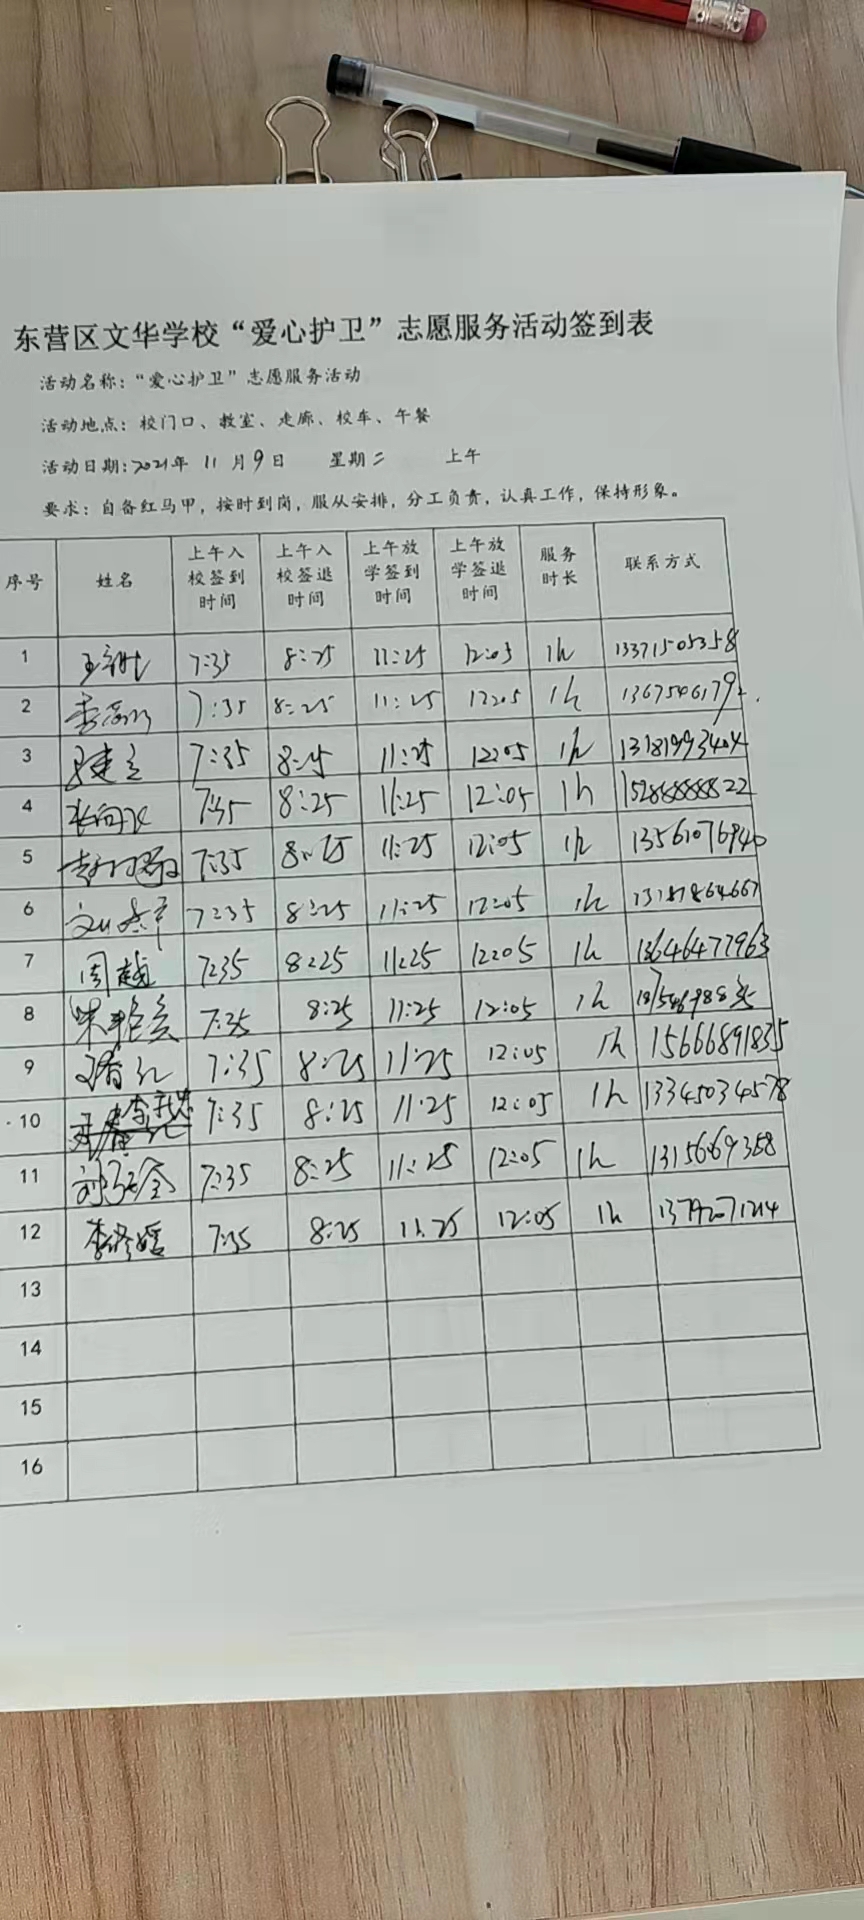 东营区文华学校“爱心护卫”志愿服务活动签到表
活动名称：“爱心护卫”志愿服务活动
活动地点：校门口、教室、走廊、校车、午餐
活动日期：2021年 11月9日 星期二 上午
要求：自备红马甲，按时到岗，服从安排，分工负责，认真工作，保持形象。
序号 姓名 上午入校签到时间 上午入校签退时间 上午放学签到时间 上午放学签退时间 服务时长 联系方式
1 7:35 8:25 11:25 12:05 1h 13371505358
2 7:35 8:25 11:25 12:05 1h
3 7:35 8:25 11:25 12:05 1h 13181993404
4 7:35 8:25 11:25 12:05 1h 15286888822
5 7:35 8:25 11:25 12:05 1h 13561076940
6 7:35 8:25 11:25 12:05 1h
7 周越 7:35 8:25 11:25 12:05 1h 13646477963
8 7:35 8:25 11:25 12:05 1h
9 7:35 8:25 11:25 12:05 1h 15666891835
10 7:35 8:25 11:25 12:05 1h 13345034578
11 7:35 8:25 11:25 12:05 1h
12 7:35 8:25 11:25 12:05 1h 13792071214
13
14
15
16